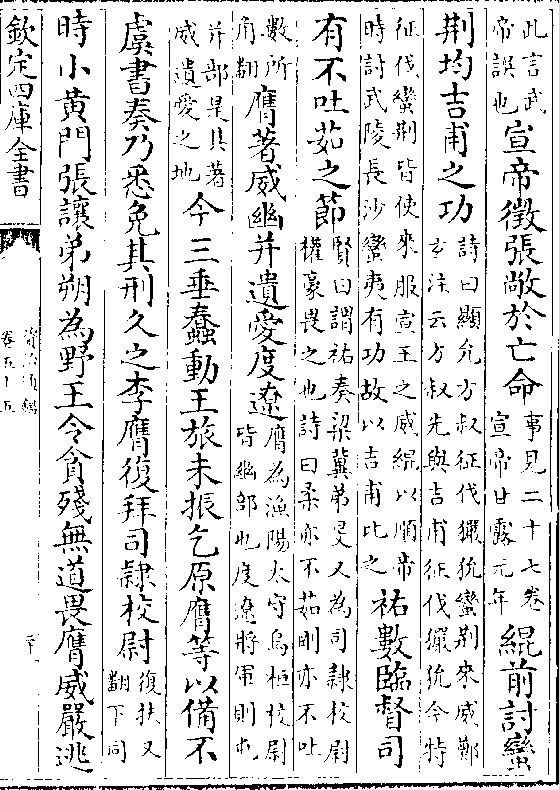 此言武
帝誤也
宣帝徵張敞於亡命
事見二十七卷
宣帝甘露元年
緄前討蠻
荆均吉甫之功
詩曰顯允方叔征伐玁狁蠻荆來威鄭
玄注云方叔先與吉甫征伐玁狁今特
征伐蠻荆皆使來服宣王之威緄以順帝
時討武陵長沙蠻夷有功故以吉甫比之
祐數臨督司
有不吐茹之節
賢曰謂祐奏梁冀弟旻又為司隸校尉
權豪畏之也詩曰柔亦不茹剛亦不吐
數所
角翻
膺著威幽并遺愛度遼
膺為漁陽太守烏桓校尉
皆幽部也度遼將軍則屯
并部是其著
威遺愛之地
今三垂蠢動王旅未振乞原膺等以備不
虞書奏乃悉免其刑久之李膺復拜司隸校尉
復扶又
翻下同
時小黄門張讓弟朔為野王令貪殘無道畏膺威嚴逃
欽定四庫全書
資治通鑑
卷五十五